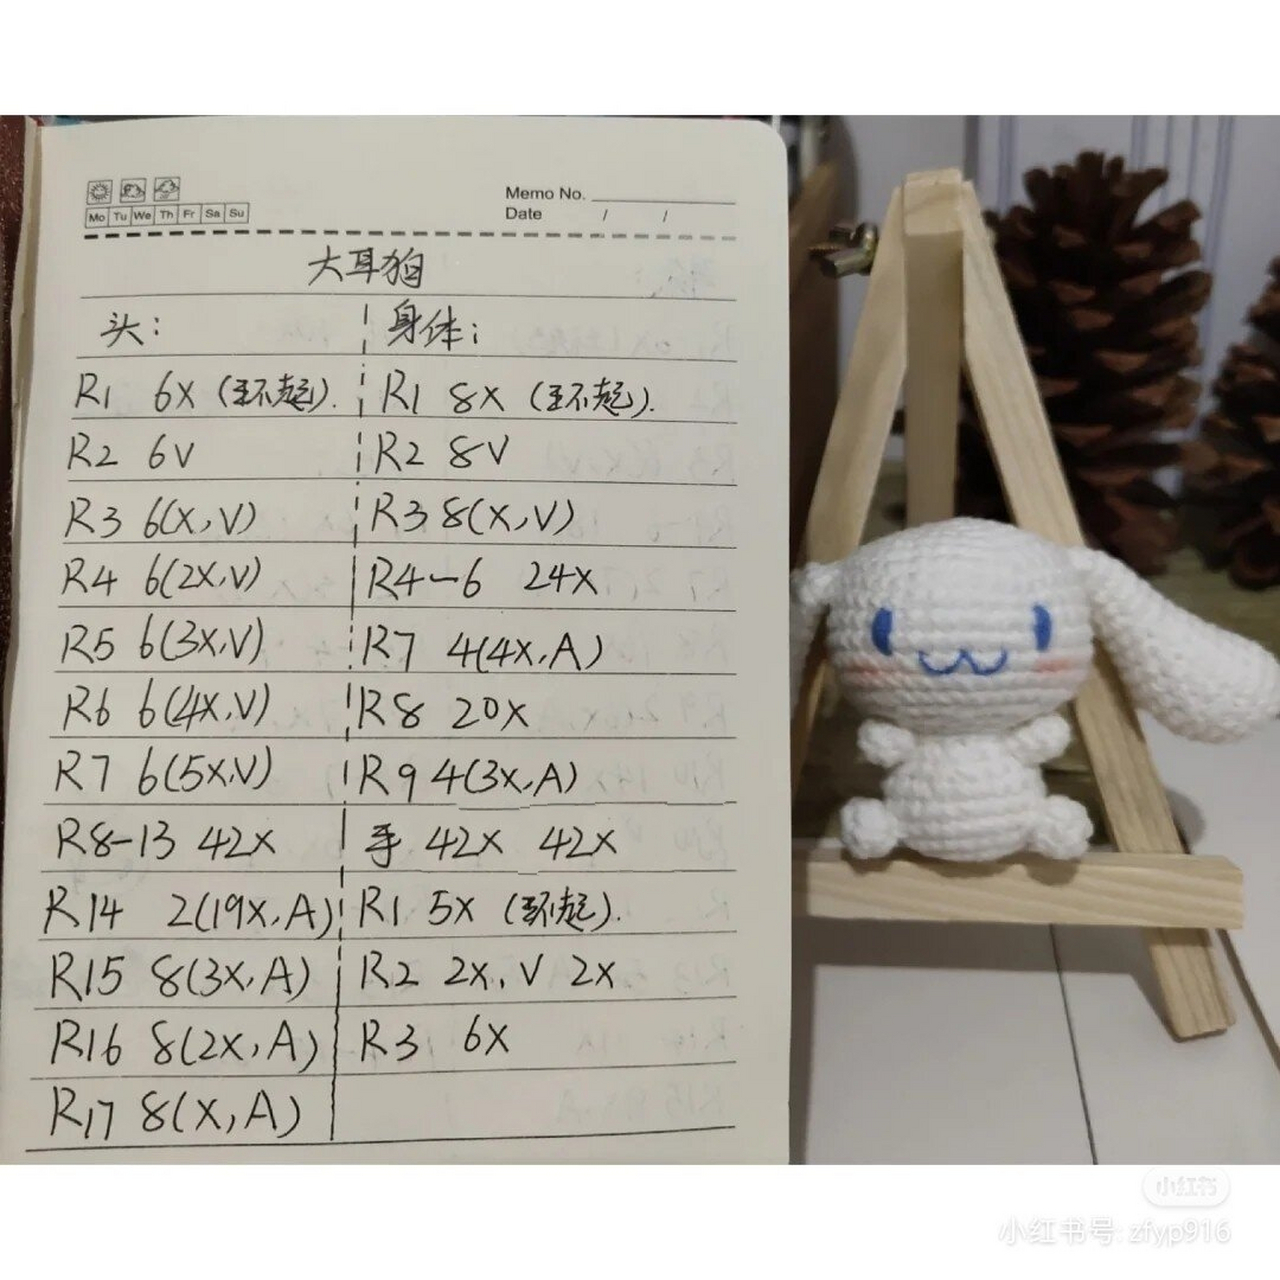 Memo No.
Mo Tu We Th Fr Sa Su
Date / /
大耳狗
头:
R1 6X (环起).
R2 6V
R3 6(X,V)
R4 6(2X,V)
R5 6(3X,V)
R6 6(4X,V)
R7 6(5X,V)
R8-13 42X
R14 2(19X,A)
R15 8(3X,A)
R16 8(2X,A)
R17 8(X,A)
身体:
R1 8X (环起).
R2 8V
R3 8(X,V)
R4-6 24X
R7 4(4X,A)
R8 20X
R9 4(3X,A)
手 42X 42X
R1 5X (环起).
R2 2X,V 2X
R3 6X
小红书
小红书号: zfyp916